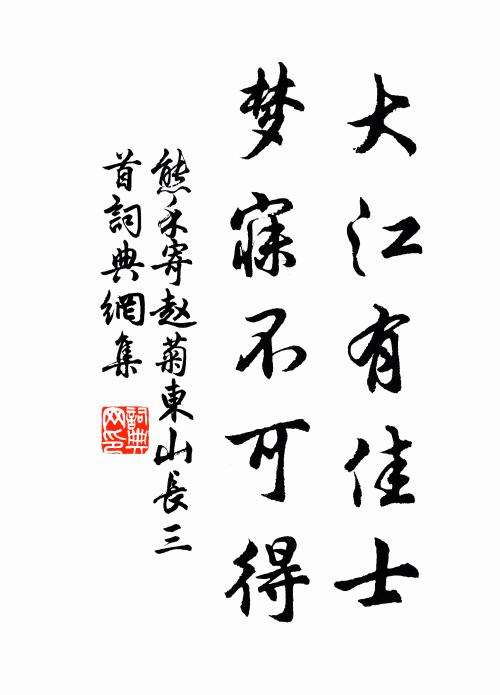 大江有佳士
梦寐不可得
熊禾寄赵菊東山長三
首詞典網集
詞典
网印